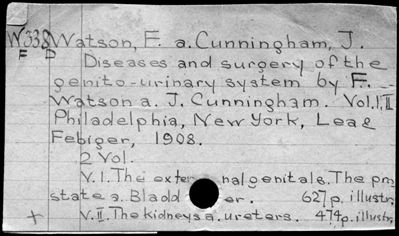 W338 Watson, F. a. Cunningham, J.
F D Diseases and surgery of the
genito-urinary system by F.
Watson a. J. Cunningham. Vol. I, II
Philadelphia, New York, Lea &
Febiger, 1908.
2 Vol.
V. I. The external genitals. The pro
state a. Bladder. 627 p. illustr.
+ V. II. The kidneys a. ureters. 474 p. illustr.